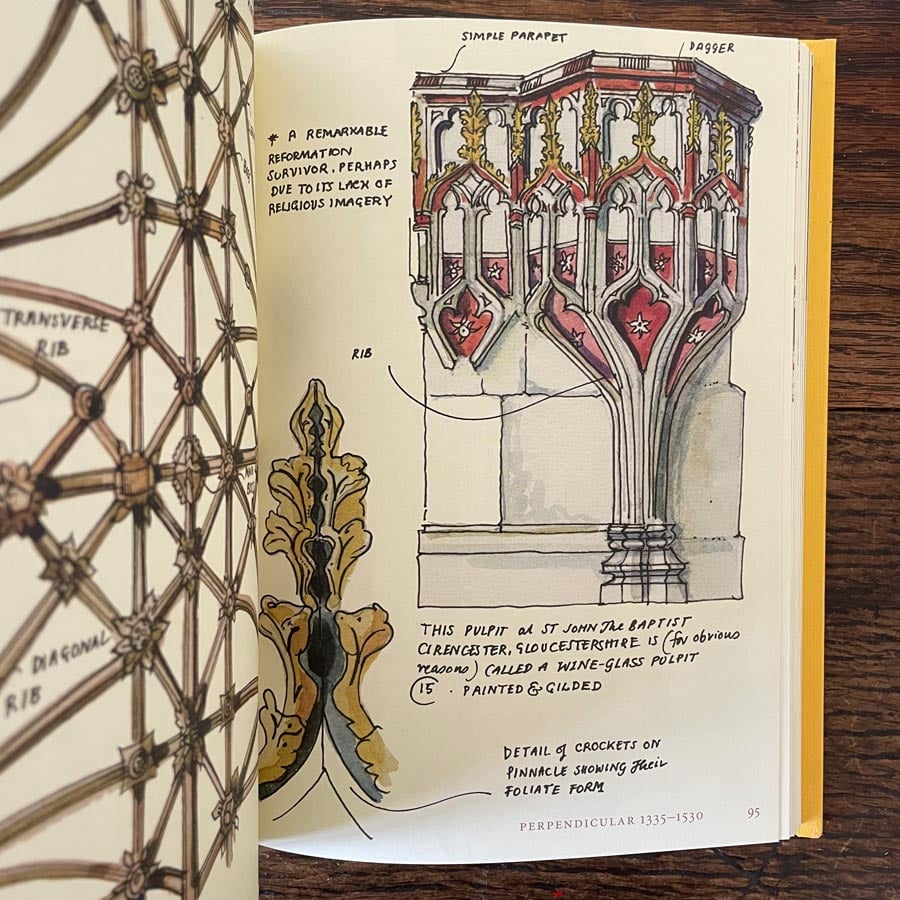 TRANSVERSE
RIB
DIAGONAL
RIB
SIMPLE PARAPET
DAGGER
* A REMARKABLE
REFORMATION
SURVIVOR, PERHAPS
DUE TO ITS LACK OF
RELIGIOUS IMAGERY
RIB
THIS PULPIT at ST JOHN The BAPTIST
CIRENCESTER, GLOUCESTERSHIRE IS (for obvious
reasons) CALLED A WINE-GLASS PULPIT
15 . PAINTED & GILDED
DETAIL of CROCKETS ON
PINNACLE SHOWING their
FOLIATE FORM
PERPENDICULAR 1335–1530 95